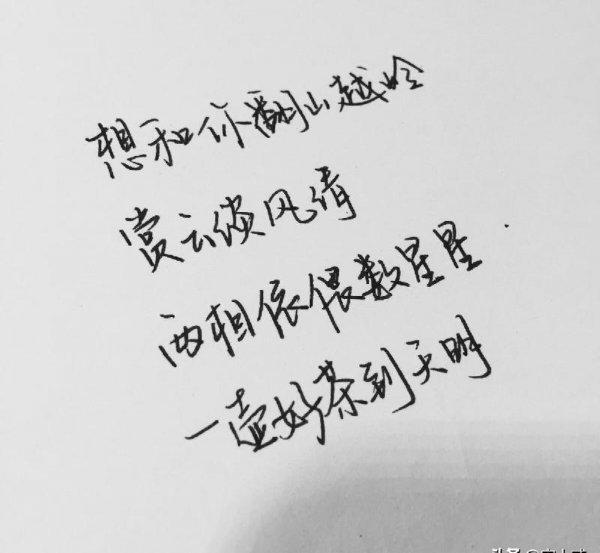 想和你翻山越岭
赏云候风情
两相依偎数星星
一壶好茶到天明